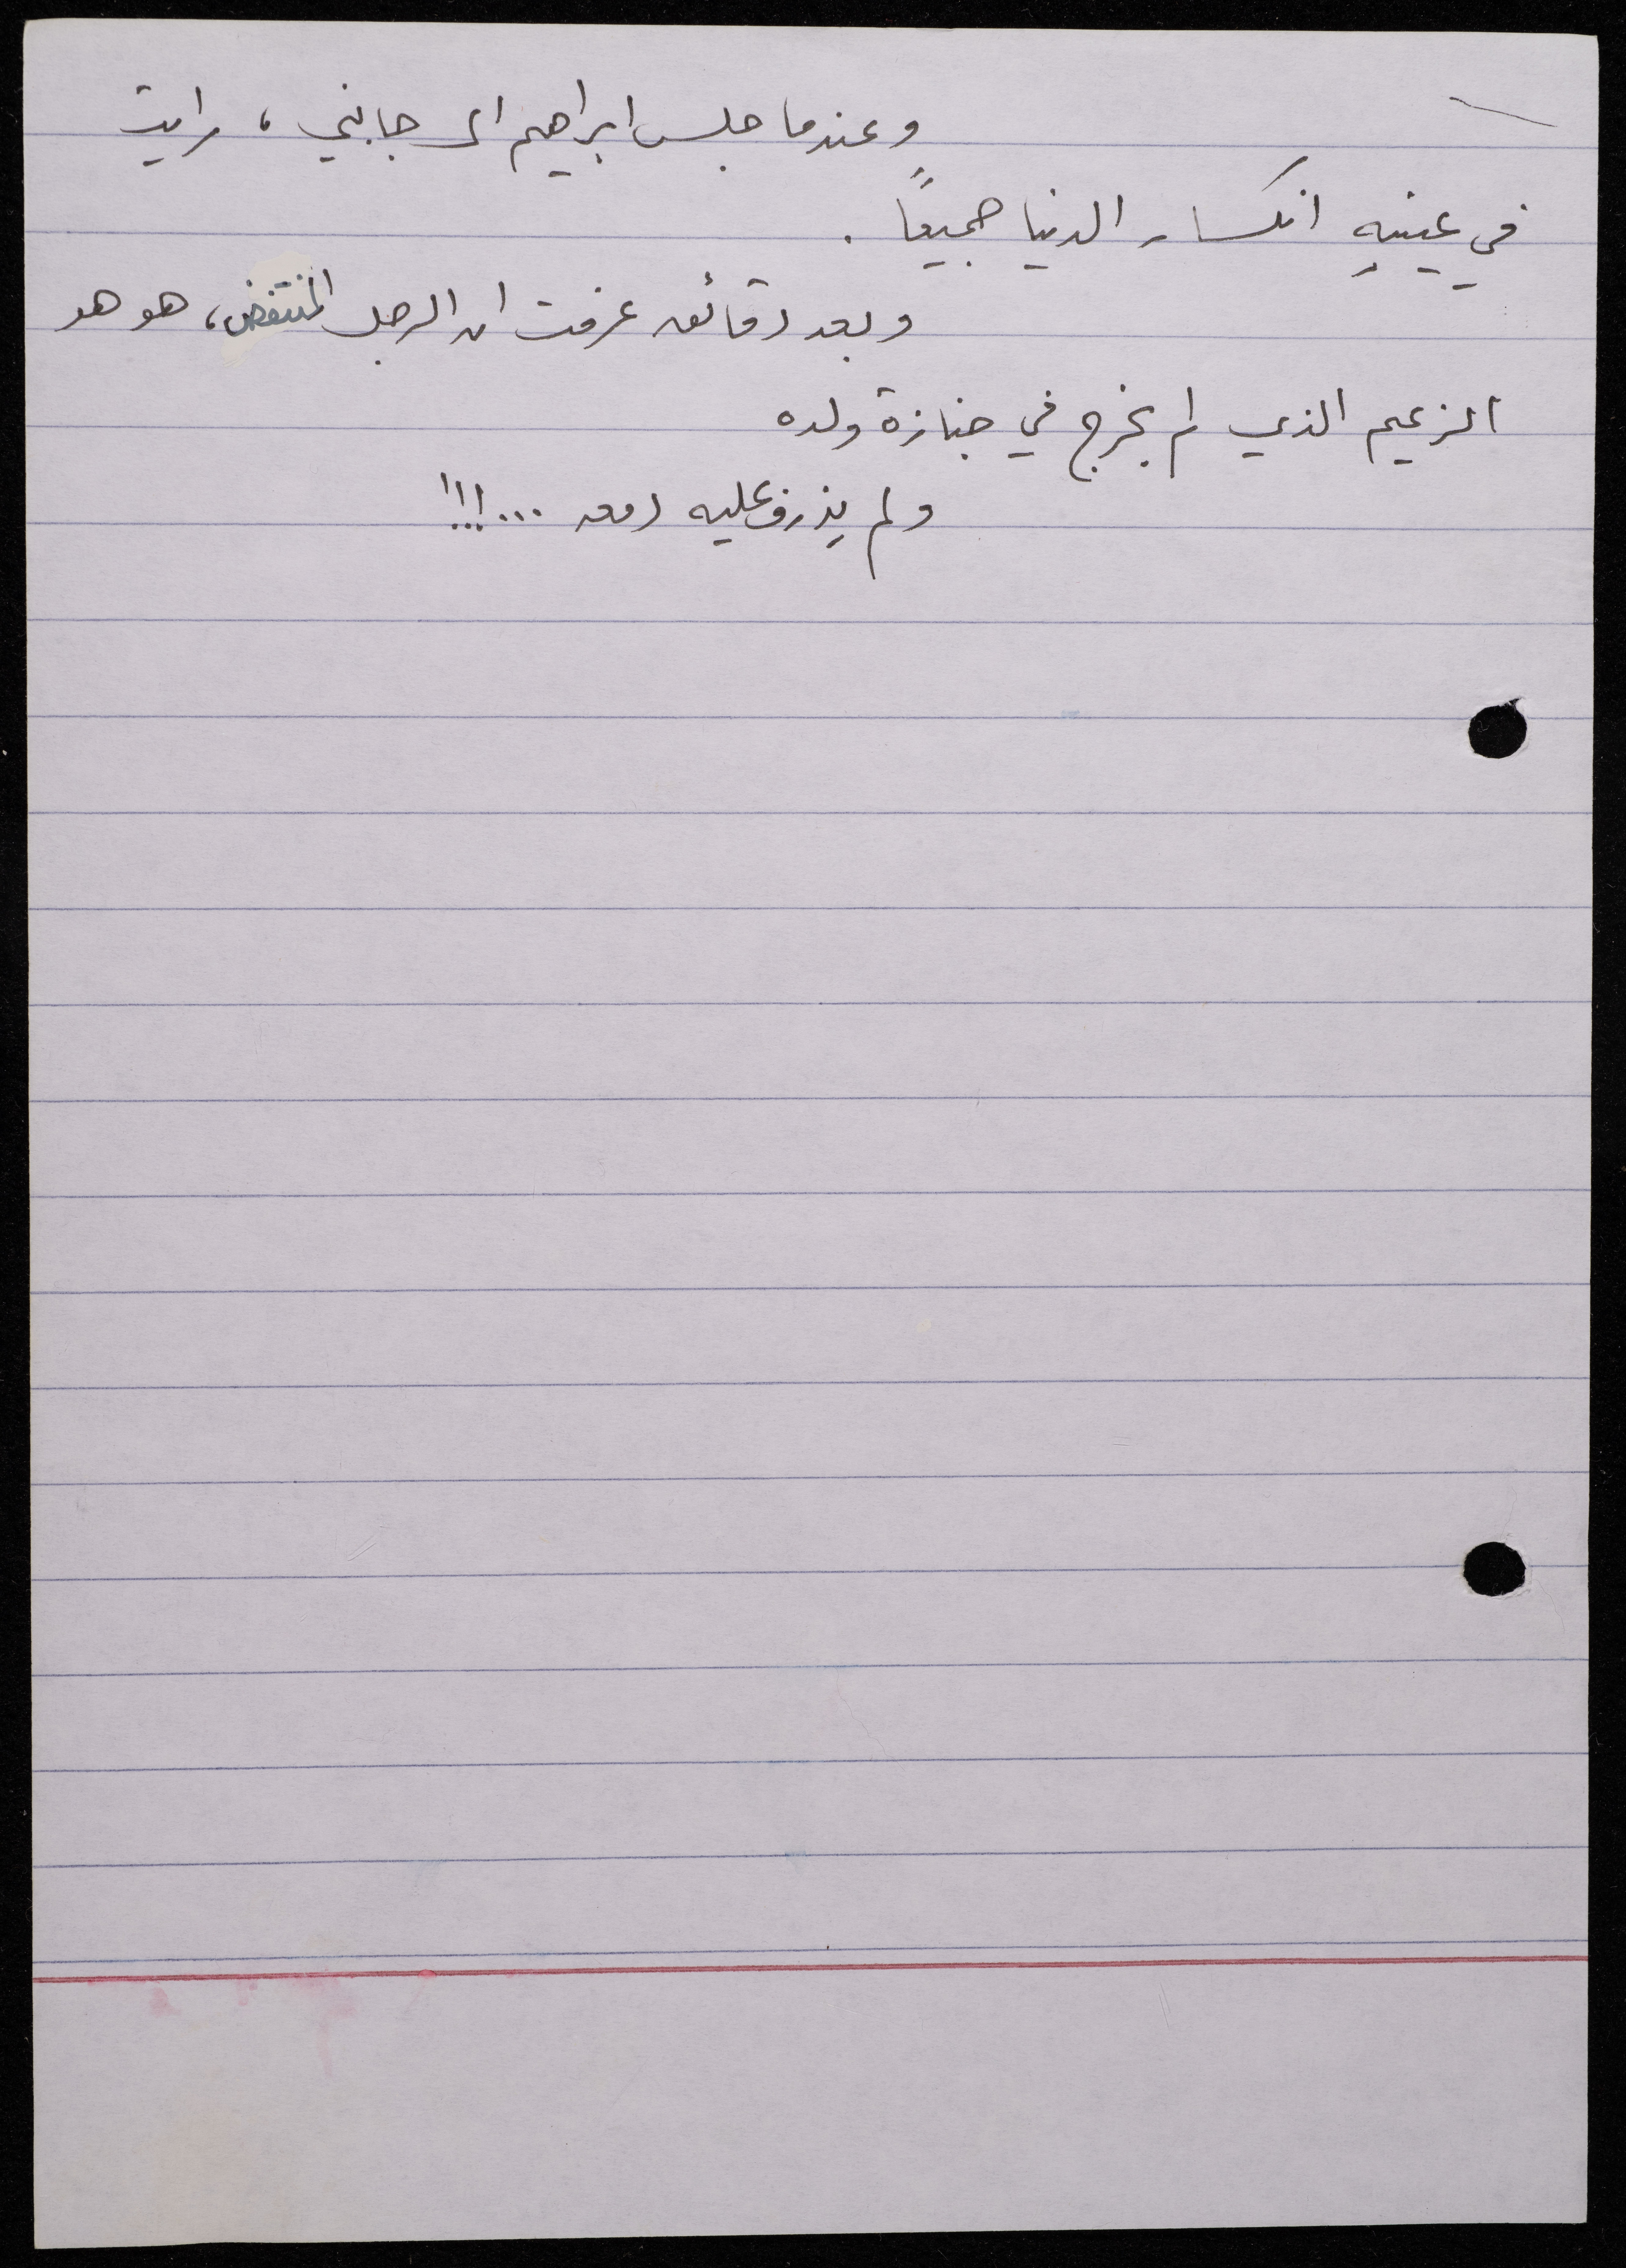 وعندما جلس ابراهيم الى جانبي ، رايت
في عينيهِ انكسار الدنيا جميعًا .
وبعد دقائق عرفت ان الرجل المنتفض، هو هو
الزعيم الذي لم يخرج في جنازة ولده
ولم يذرف عليه دمعه ...!!!